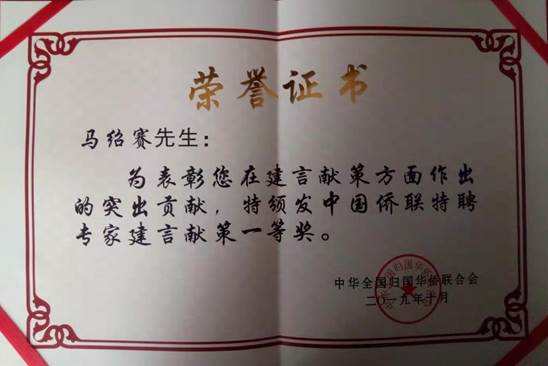 荣誉证书
马绍赛先生：
为表彰您在建言献策方面作出
的突出贡献，特颁发中国侨联特聘
专家建言献策第一等奖。
中华全国归国华侨联合会
二〇一九年十月